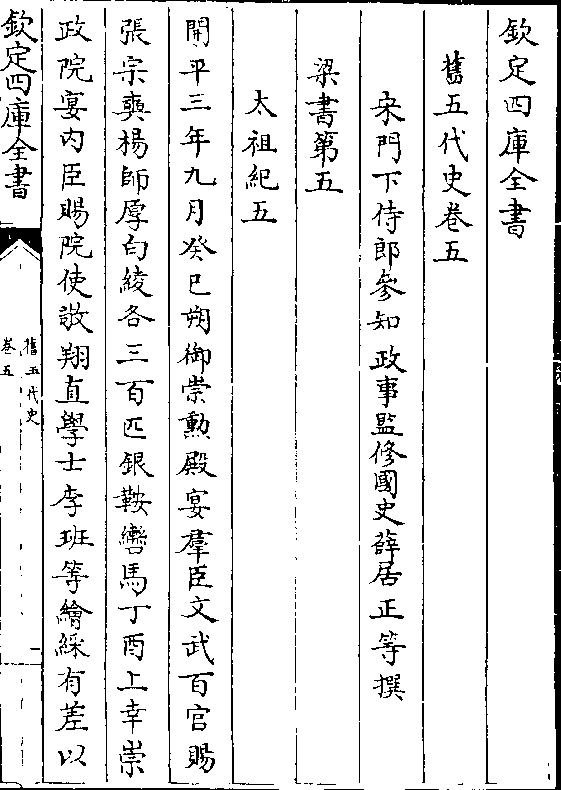 欽定四庫全書
舊五代史卷五
宋門下侍郎參知政事監修國史薛居正等撰
梁書第五
太祖紀五
開平三年九月癸巳朔御崇勲殿宴羣臣文武百官賜
張宗奭楊師厚白綾各三百匹銀鞍轡馬丁酉上幸崇
政院宴内臣賜院使敬翔直學士李班等繒綵有差以
欽定四庫全書
舊五代史
卷五
一